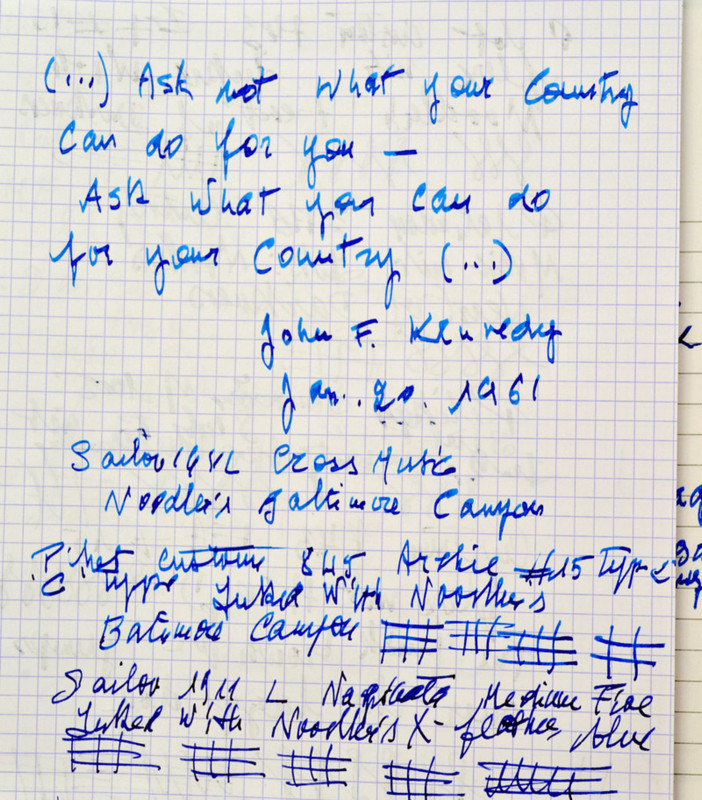 (...) Ask not what your Country
Can do for you —
Ask what you can do
for your Country (...)
John F. Kennedy
Jan. 20. 1961
Sailor L Cross Music
Noodler's Baltimore Canyon
Pilot Custom 845 #15 Type
C Type Inked With Noodlers
Batimore Canyon
Sailor 1911 L Naginata Medium Fine
Inked With Noodler's X-feather blue